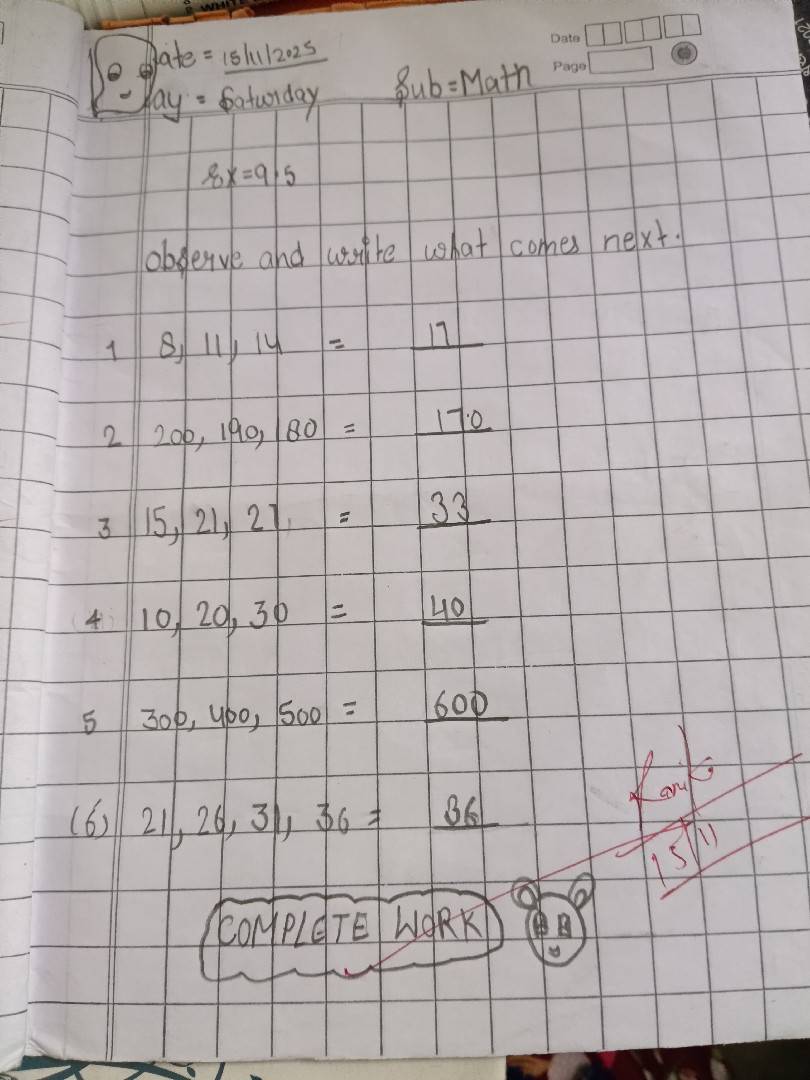 Date
Page
Date = 15/11/2025
Day = Saturday
Sub = Math
Ex = 9.5
observe and write what comes next.
1 8, 11, 14 = 17
2 200, 190, 180 = 170
3 15, 21, 27 = 33
4 10, 20, 30 = 40
5 300, 400, 500 = 600
(6) 21, 26, 31, 36 = 36
15/11
COMPLETE WORK